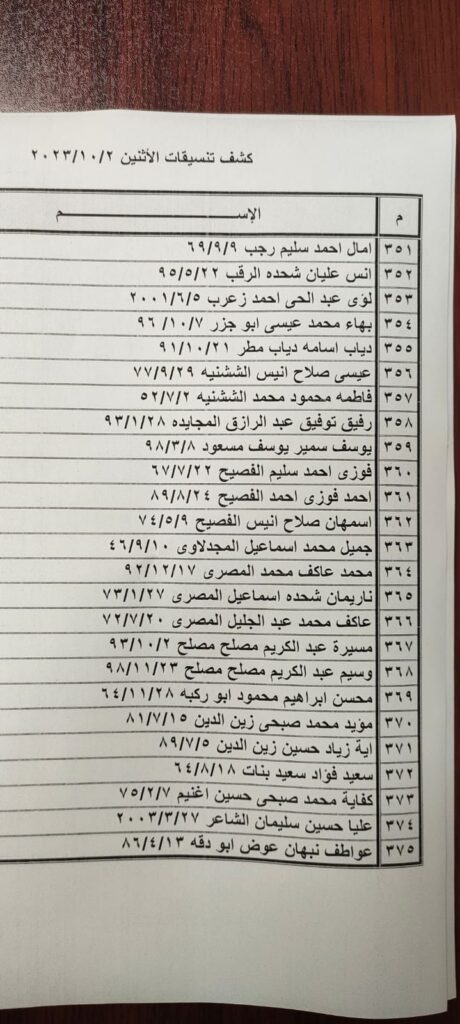 كشف تنسيقات الأثنين ٢٠٢٣/١٠/٢
م الإســـــــــم
٣٥١ امال احمد سليم رجب ٦٩/٩/٩
٣٥٢ انس عليان شحده الرقب ٩٥/٥/٢٢
٣٥٣ لؤى عبد الحى احمد زعرب ٢٠٠١/٦/٥
٣٥٤ بهاء محمد عيسى ابو جزر ٩٦/١٠/٧
٣٥٥ دياب اسامه دياب مطر ٩١/١٠/٢١
٣٥٦ عيسى صلاح انيس الششنيه ٧٧/٩/٢٩
٣٥٧ فاطمه محمود محمد الششنيه ٥٢/٧/٢
٣٥٨ رفيق توفيق عبد الرازق المجايده ٩٣/١/٢٨
٣٥٩ يوسف سمير يوسف مسعود ٩٨/٣/٨
٣٦٠ فوزى احمد سليم الفصيح ٦٧/٧/٢٢
٣٦١ احمد فوزى احمد الفصيح ٨٩/٨/٢٤
٣٦٢ اسمهان صلاح انيس الفصيح ٧٤/٥/٩
٣٦٣ جميل محمد اسماعيل المجدلاوى ٤٦/٩/١٠
٣٦٤ محمد عاكف محمد المصرى ٩٢/١٢/١٧
٣٦٥ ناريمان شحده اسماعيل المصرى ٧٣/١/٢٧
٣٦٦ عاكف محمد عبد الجليل المصرى ٧٢/٧/٢٠
٣٦٧ مسيرة عبد الكريم مصلح مصلح ٩٣/١٠/٢
٣٦٨ وسيم عبد الكريم مصلح مصلح ٩٨/١١/٢٣
٣٦٩ محسن ابراهيم محمود ابو ركبه ٦٤/١١/٢٨
٣٧٠ مؤيد محمد صبحى زين الدين ٨١/٧/١٥
٣٧١ اية زياد حسين زين الدين ٨٩/٧/٥
٣٧٢ سعيد فؤاد سعيد بنات ٦٤/٨/١٨
٣٧٣ كفاية محمد صبحى حسين اغنيم ٧٥/٢/٧
٣٧٤ عليا حسين سليمان الشاعر ٢٠٠٣/٣/٢٧
٣٧٥ عواطف نبهان عوض ابو دقه ٨٦/٤/١٣